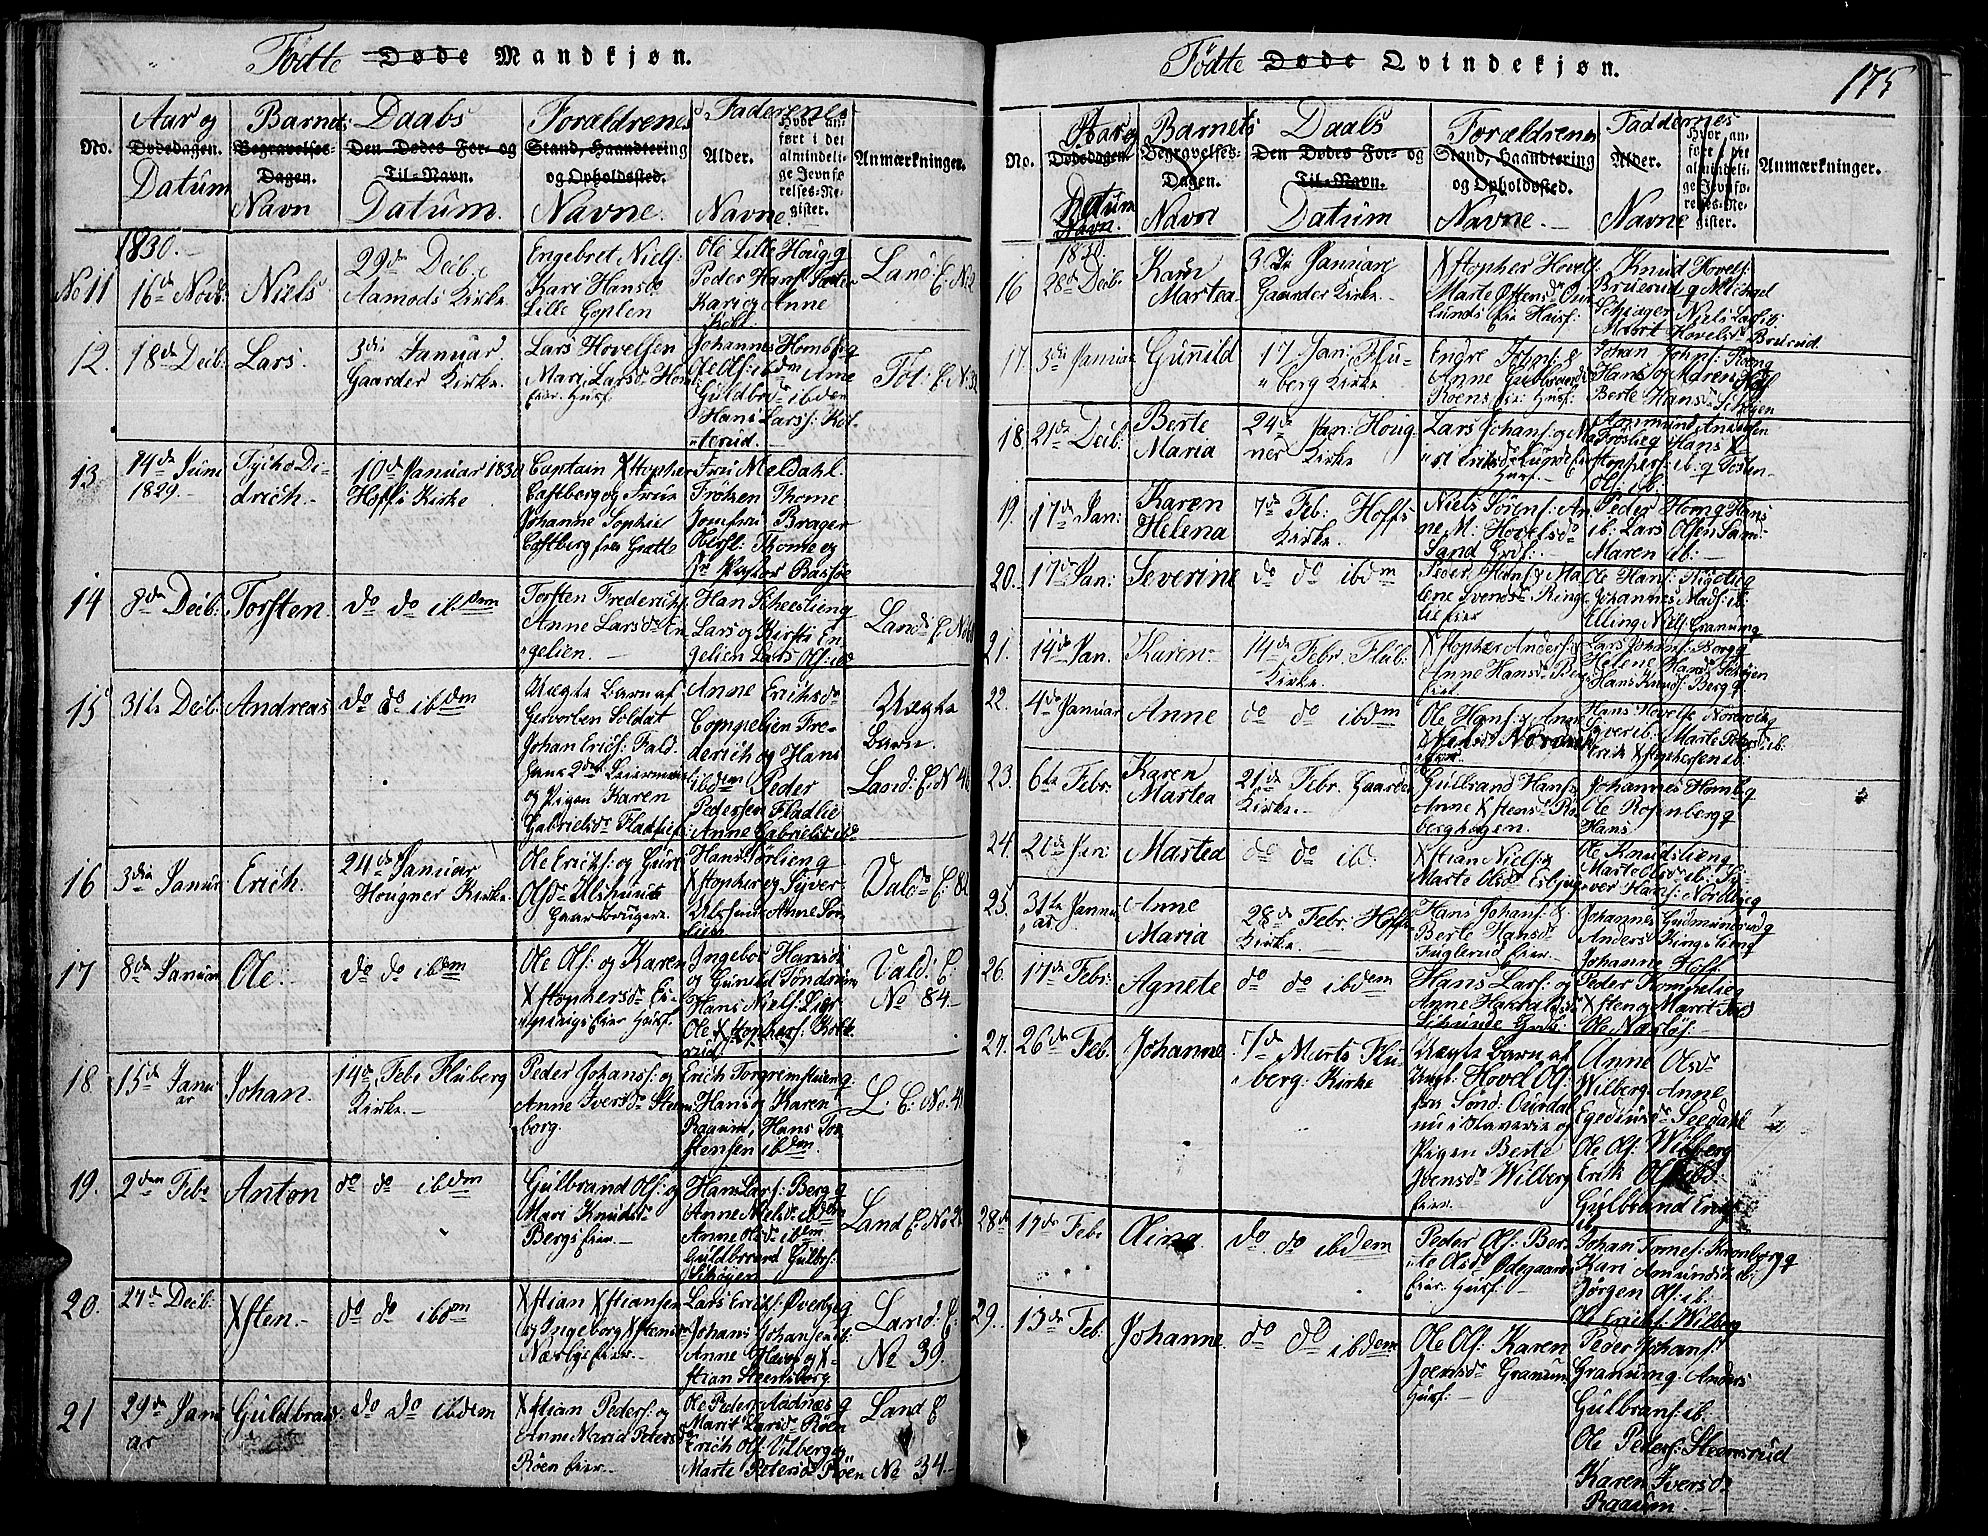 Fødte Døde Mandkjøn.
No.
Aar og
Dødedagen.
Datum
Barnets
Begravelses-
Dagen.
Navn
Daabs
Den Dødes For- og
Til-Navn.
Datum.
Forældrenes
Stand, Haandtering
og Opholdssted.
Navne.
Faderenes
Alder.
Navne
Hvor an-
ført i det
almindeli-
ge Jevnfø-
relses-Re-
gister.
Anmærkninger.
1830.
No 11
16de Novb:
Niels
29de Decb.
Aamods Kirke
Engebret Niels:
Kari Hansd.
Lille Goplen
Ole Lille Houg q
Peder Hans: Sæter
Kari og Anne
Land: E. N 2
12.
18de Decb:
Lars.
3die Januar
Gaarder Kirke.
Lars Hovelsen
Mari Larsd. Hom
Eier. Husf.
Johannes Homb q
Ole Ols: ibdm Ane
Guldbr: ibdem
Hans Lars: Kol-
lerud.
Tot: E. N. 32
13.
14de Juni
1829.
Tycho Di-
drich.
10de Januar 1830
Hoffs Kirke
Captain Xstopher
Castberg og Frue
Johanne Sophie
Castberg
Fru Meldahl.
Frøken Thome
Jomfru Brager
Obrstl: Thome og
Hr Pastor Bassøe
14
8de Decb:
Torsten.
do do ibdem
Torsten Frederichs:
Anne Larsd. En
gelien.
Han Scheeslien q
Lars og Kirsti En
gelien Lars Ols: ibd
Land: E. No
15
31te Decb:
Andreas
do do ibdem
Uægte Barn af
Gevorben Soldat
Johan Erichs: Fald.
hans 2det Leiermaal
og Pigen Karen
Gabrielsd. Fladlie:
Anne Eriksd.
Compelien Fre-
derich og Hans
ibdem Peder
Pedersen Fladlie
Anne Gabrielsd. ibd.
Uægte
Barn.
Land: E. N 46
16
3die Januar
Erich.
24de Januar
Hougner Kirke.
Ole Erichs: og Guri
Olsd. Ulshunds
Gaardbrugere.
Hans Sørlien q
Xstopher og Syver
Ulshund Anne Sør
lien
Vald: E: 82
17
8de Januar
Ole.
do do ibdem
Ole Ols: og Karen
Xstophersd.
Eier Husf.
Ingebor Hansd.
og Gunild Tøndrum
Hans Niels:
Ole Xstophers: Kolte
rud
Vald: E:
No 84
18
15de Janu
ar
Johan.
14de Feb: Fluberg
Kirke.
Peder Johans: og
Anne Iversd. Steens
borg.
Erich Torgrimstuen q:
Hans og Karen
Raaum, Hans Tor
stensen ibdem.
L. E: No. 41
19.
2den Feb:
Anton
do do ibdem
Gulbrand Ols: og
Mari Knudsd.
Bergs Eier.
Hans Lars: Berg q
Anne Nielsd. ibdem
Anne Olsd. ibdem
Guldbrand Gulbr:
Schøyen
Land E: No 21
20.
27de Decb:
Xsten.
do do ibdm
Xstian Xstiansen
og Ingeborg Xstensd.
Nærbye Eier.
Lars Eriks: Overbye q
Johans Johansen ib:
Anne Haver og X-
stian Steensberg.
Land: E:
No 39.
21
29de Janu
ar
Guldbrand
do do ibdem
Xstian Peders: og
Anne Maria Petersd.
Røen Eier.
Ole Peders: Aadnæs q
Marit Larsd. Røen
Erich Ols: Vilberg q
Marte Petersd. Røen
Land E
No 34
Fødte Døde Qvindekjøn.
175
No.
Aar og
Dødedagen.
Datum
Navn.
Barnets
Begravelses-
Dagen.
Navn
Daabs
Den Dødes For- og
Til-Navn.
Datum
Forældrenes
Stand, Haandtering
og Opholdssted.
Navne.
Faddernes
Alder.
Navne
Hvor an-
ført i det
almindeli-
ge Jevnfø-
relses-Re-
gister.
Anmærkninger.
1830.
16
28de Decb:
Karn
Martea.
3die Januari
Gaarder Kirke.
Xstopher Hovels:
Marte Østensd.
lunds Eier Husf:
Knud Hovels:
Bruerud q Michael
Schiager Niels Lars: ib:
Marit Hovelsd. Bruerud
17.
3die Januar
Gunild
17 Jan: Flu-
berg Kirke.
Endre Johns: &
Anne Gulbrandsd.
Roens Eier: Husf:
Johan Johns: Roen q
Hans og Maren Hof
Berte Hansd. Schøyen
18.
21de Decb:
Berte
Maria
24de Jan: Houg
ner Kirke
Lars Johans: og Ma
rit Eriksd. Lunde Eier
Husf.
Aammund Andersen
Frøslie q Hans X
stophers: ib. q Tosten
Ols: ib.
19.
17de Jan:
Karen
Helena
7de Feb: Hoffs
Kirke.
Niels Sørens: An
ne M: Hovelsd.
Sand Grdf:
Peder Homq Hans
ib: Lars Olsen Sand
Maren ib:
20.
17de Jan:
Severine
do do ibdm
Peder Hans: & Ma
lene Svendsd. Ringe
lie Eier
Ole Hans: q
Johannes Mads: ib:
Elling Niels: Granum q
21.
14de Jan.
Karen.
14de Febr. Flub:
Kirke.
Xstopher Anders: &
Anne Hansd. Berg
Eier.
Lars Johans: Borg q
Helene Hansd. Schøien
Hans Knuds: Berg q
22.
4de Januar
Anne
do do ibdem
Ole Hans: & Anne
Xstensd. Nordvold
Eier.
Hans Hovels: Nordvold q
Syver ib: Marte Peders: ib:
Erik Xstophersen ib:
23.
6te Febr.
Karen
Martea
21de Febr. Gaarder
Kirke.
Gulbrand Hans:
Anne Xstensd. Ro
berghagen.
Johannes Homb q
Ole Rosenberg q
Hans
24.
21de Jan:
Martea
do do ibd.
Xstian Niels: &
Marte Olsd.
Ole Knudslien q
Marte Olsd. ib: Sy
ver Hans: Nordlie q
25.
31te Janu
ar
Anne
Maria
28de Febr: Hoffs
Kirke.
Hans Johans: &
Berte Hansd.
Fuglerud Eier.
Johannes Gudmundsrud q
Anders Ringelien q
Johanne Hoff.
26.
17de Febr:
Agnete
do do ibdem
Hans Lars: og
Anne Haraldsd.
Lishunde Grdb:
Peder Kompelie q
Xsten q Marit Fald
Ole Næsløs:
27.
26de Feb.
Johanne
7de Marts Flu
berg: Kirke
Uægte Barn af
Ungk: Hovel Ols:
fra Sønd: Ourdal
nu i Slaverie og
Pigen Berte
Ivensd. Wilberg
Eier.
Anne Olsd.
Wilberg Anne
Egediusd. Seedahl
Ole Ols: Wilberg
Erik Ols: ibd:
Gulbrand Enge
ib
28de
17de Feb:
Aina
do. do ibdem
Peder Ols: Ber-
te Olsd. Ødegaard
Eier. Husf:
Johan Tomes: Kronborg q
Kari Amundsd. ib:
Jørgen Ols: ib.
Ole Erichs: Wilberg
29.
13de Feb.
Johanne.
do do ibdem
Ole Ols: Karen
Ivensd. Granum
Husf:
Peder Johans:
Granum q Anders
Gulbrans: ib.
Ole Peders: Steensrud
Karen Iversd.
Raaum.